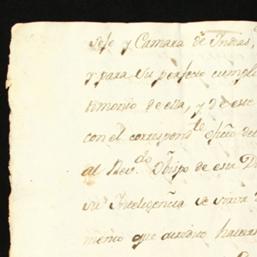 Jefe y Camara de Indias,
y para su perfecto cumpli
timonio de ella, y de este
con el correspond.te oficio de
al Rev.do Obispo de esta D
su Inteligencia se sirva
mento que